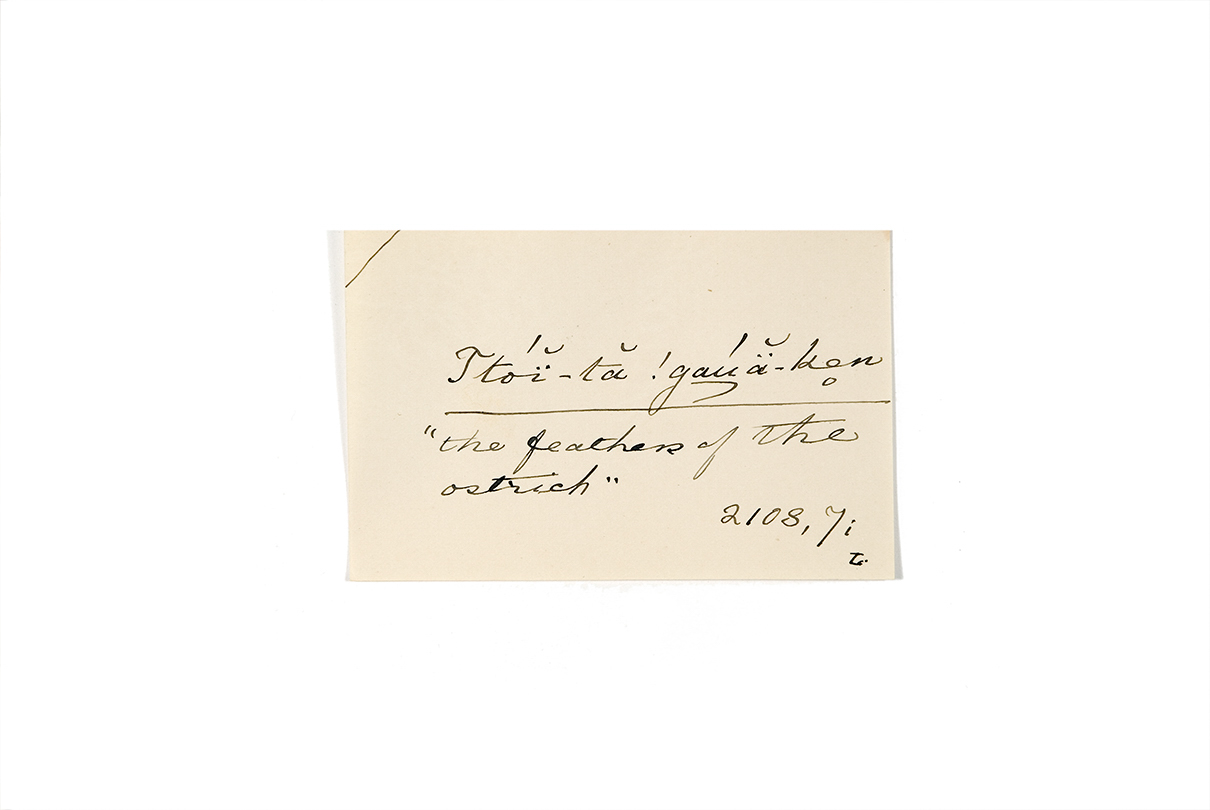 Ttóï̆-tă !gaúä̆-ken̥
"the feathers of the
ostrich"
2108, 7i
L.